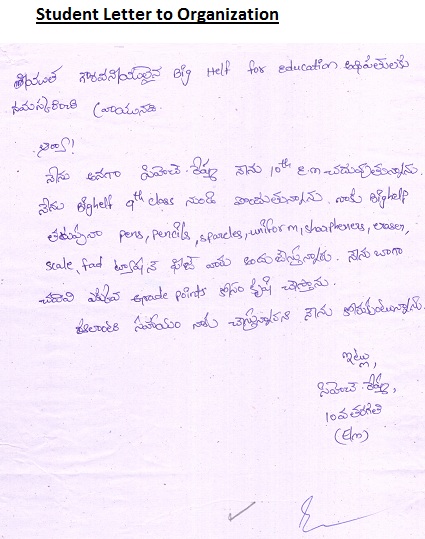 Student Letter to Organization
శ్రీయుత గౌరవనీయులైన Big Help for education అధిపతులకు
నమస్కరించి వ్రాయునది.
ఆర్యా!
నేను అనగా నేను 10th E.m చదువుతున్నాను.
నేను Bighelp 9th class నుండి పొందుతున్నాను. నాకు Bighelp
తరుపున pens, pencils, sparcles, uniform, shaapheners, eraser,
scale, fad వారు అందుచేస్తున్నారు. నేను బాగా
చదివి ఎక్కువ grade points కోసం కృషి చేస్తాను.
ఇలాంటి సహాయం నాకు చేస్తున్నారని నేను కోరుకుంటున్నాను.
ఇట్లు,
10వ తరగతి
(E/m)